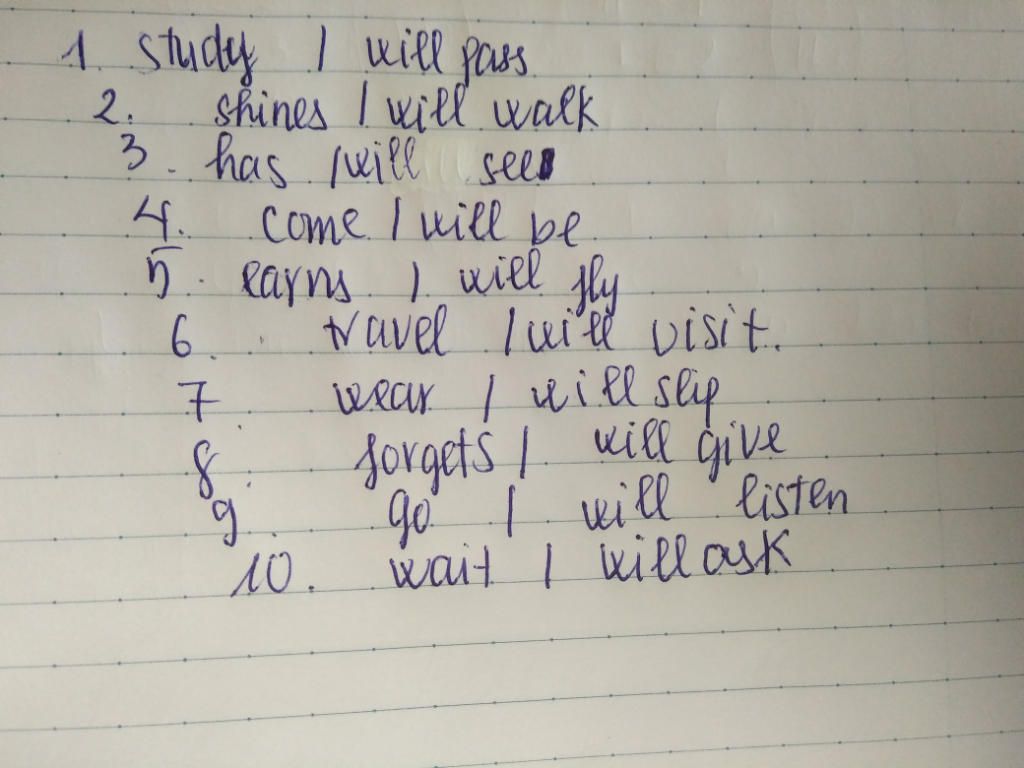 1. study / will pass
2. shines / will walk
3. has / will see
4. come / will be
5. earns / will fly
6. travel / will visit.
7 wear / will slip
8. forgets / will give
9. go / will listen
10. wait / will ask